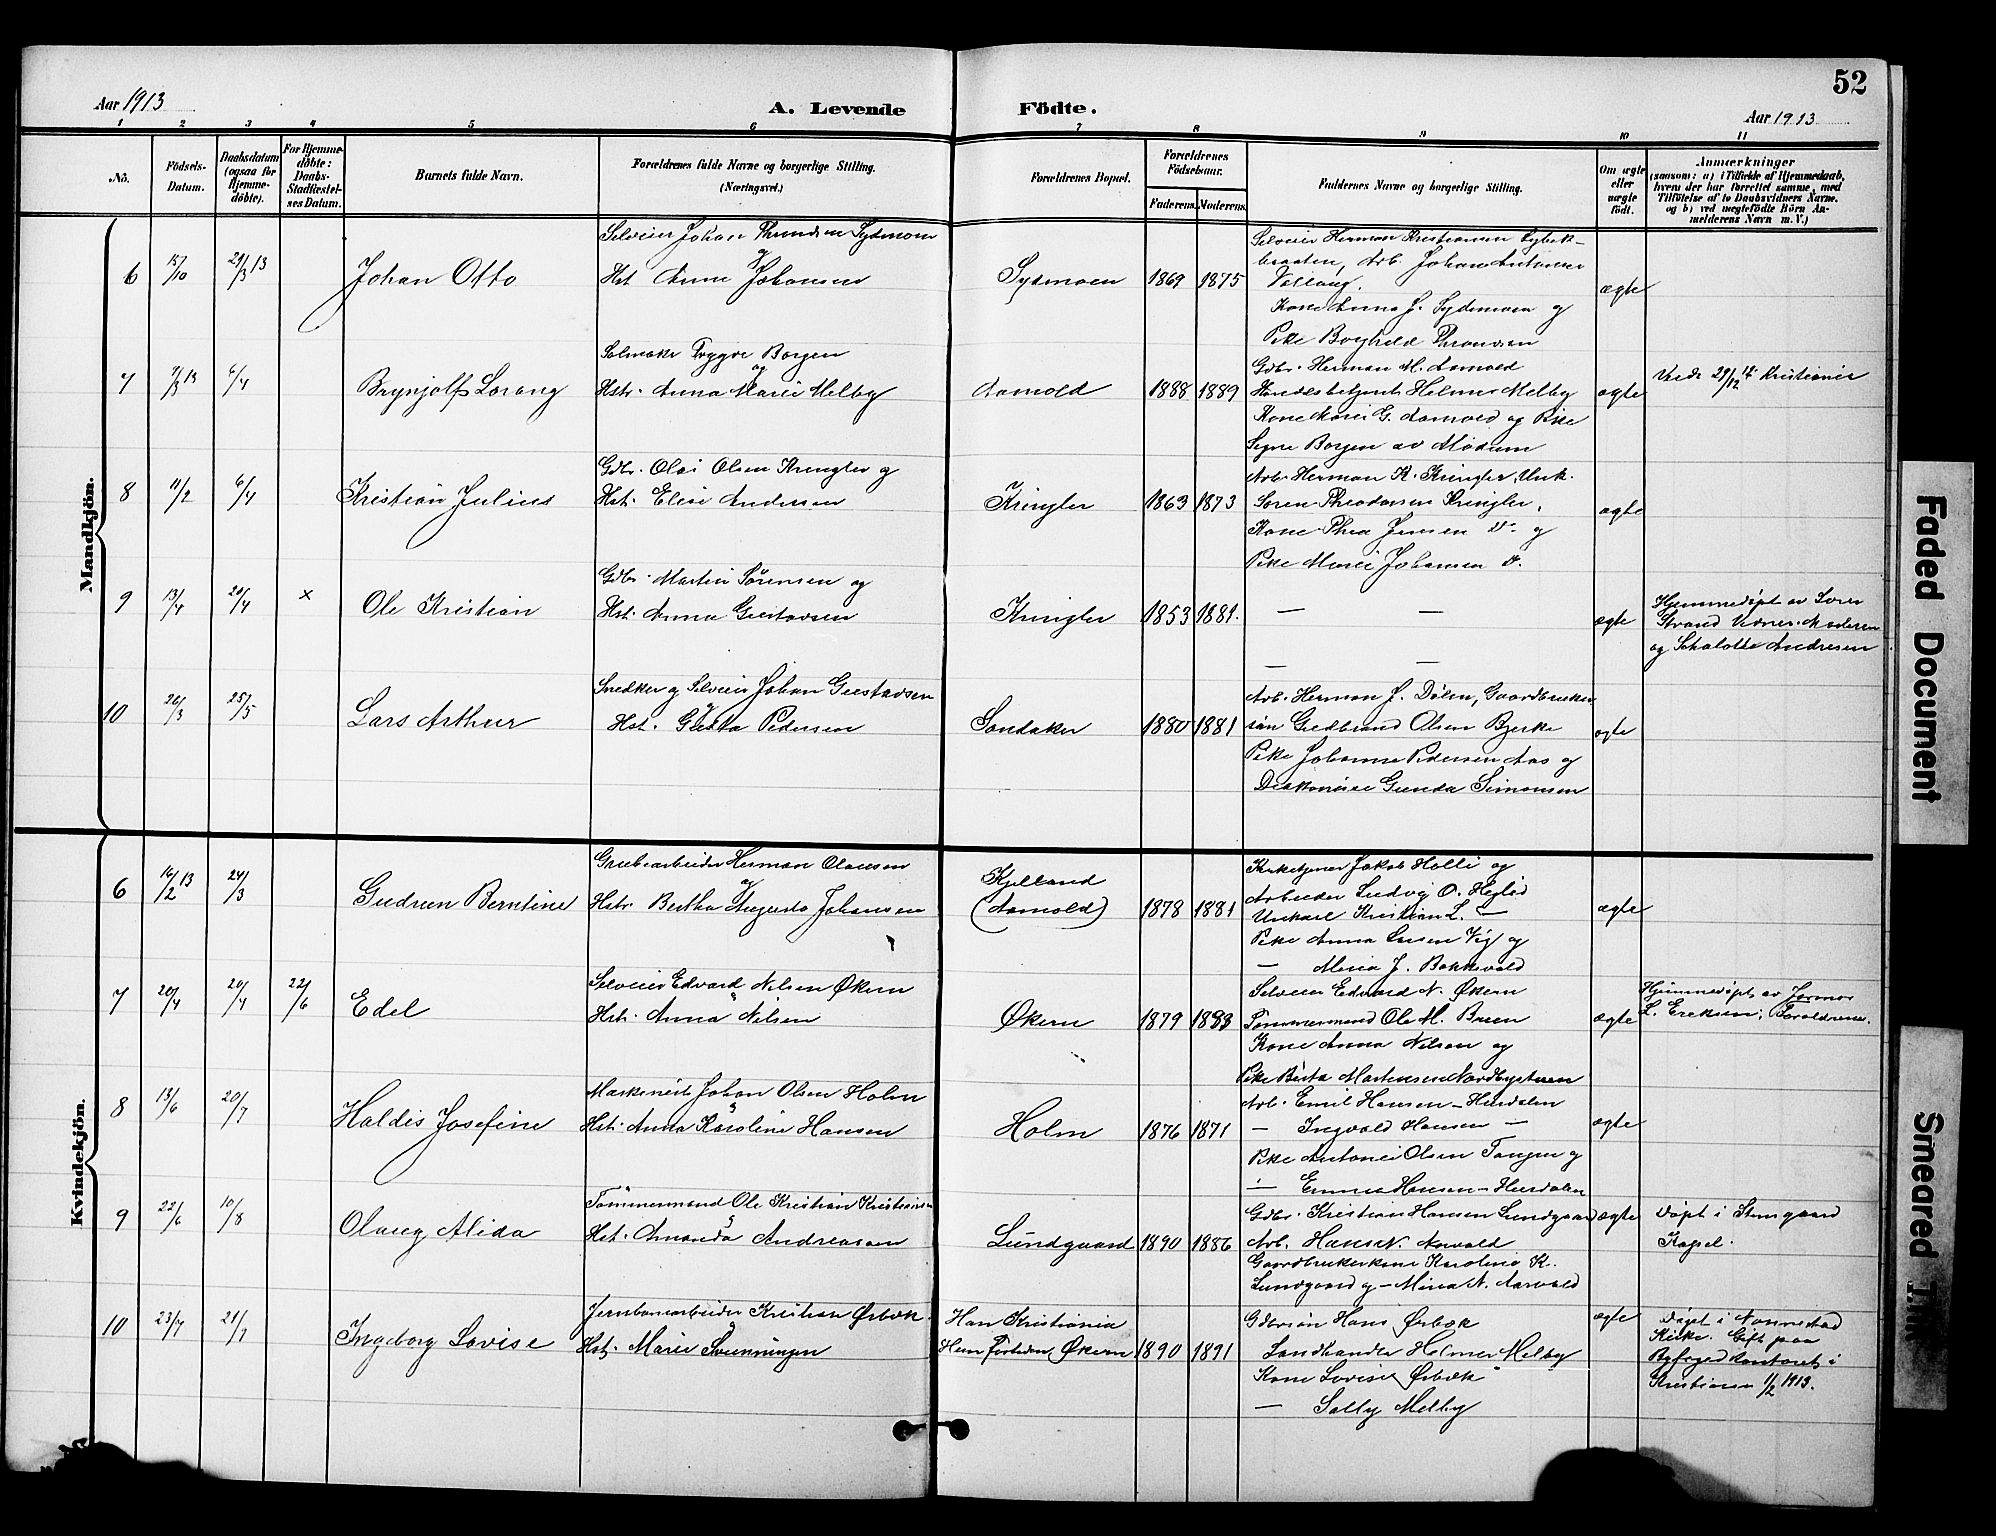 52
Aar 1913
A. Levende Födte.
Aar 1913
1 2 3 4 5 6 7 8 9 10 11
No.
Födsels-
Datum.
Daabsdatum
(ogsaa for
Hjemme-
döbte).
For Hjemme-
döbte:
Daabs-
Stadfæstel-
ses Datum.
Barnets fulde Navn.
Forældrenes fulde Navne og borgerlige Stilling.
(Næringsvei.)
Forældrenes Bopæl.
Forældrenes
Födselsaar.
Faderens.
Moderens.
Faddernes Navne og borgerlige Stilling.
Om ægte
eller
uægte
födt.
Anmærkninger
(saasom: a) i Tilfælde af Hjemmedaab,
hvem der har forrettet samme, med
Tilföielse af to Daabsvidners Navne,
og b) ved uegtefödte Börn An-
melderens Navn m. V.)
Mandkjön.
6 15/10 24/3 13 Johan Otto
Selveier Johan Throndsen Sydmoen
og
Hst. Anna Johansen
Sydmoen 1869 1875
Selveier Herman Kristiansen
braaten, Arb. Johan Antonsen
Kone Anna J. Sydmoen og
Pike Borghild Throndsen
ægte
7 7/3 13 6/4 Brynjolf Lorang
Salmaker Trygve Borgen
og
Hstr. Anna Marie Melby
Aamold 1888 1889
Gdbr. Herman M. Aamold
Handelsbetjent Helmer Melby
Kone Marie G. Aamold og Pike
Signe Borgen av Modum
ægte
29/12 14 Kristiania
8 11/2 6/4 Kristian Julius
Gdbr. Olai Olsen Kringler og
Hst. Elise Andersen
Kringler 1863 1873
Arb. Herman K. Kringler, Unk.
Søren Theodorsen Kringler,
Kone Thea Jensen do og
Pike Marie Johansen do.
ægte
9 13/4 20/4 × Ole Kristian
Gdbr. Martin Sörensen og
Hst. Anna Gustavsen
Kringler 1853 1881.
— —
— —
ægte
Hjemmedöpt av Soren
Strand Vidner. Moderen
og Schalotte Andresen
10 26/3 25/5 Lars Arthur
Snedker og Selveier Johan Gustavsen
og
Hst. Gusta Pedersen
Sandaker 1880 1881
Arb. Herman J. Dölen, Gaardbruker
sön Gudbrand Olsen Bjerke
Pike Johanne Pedersen Aas og
Diakonisse Gunda Simonsen
ægte
Kvindekjön.
6 16/2 13 24/3 Gudrun Berntine
Grubearbeider Herman Olausen
og
Hstr. Bertha Augusta Johansen
Kjelland
(Aamold)
1878 1881
Kirketjener Jakob Holli og
Arbeider Ludvig O.
Unkarl Kristian L. —
Pike Anna Larsen Vig og
— Maria J. Bakkevold
ægte
7 20/4 20/4 22/6 Edel
Selveier Edvard Nilsen Økern
Hst. Anna Nilsen
Økern 1879 1883
Selveier Edvard N. Økern
Tömmermand Ole M. Breen
Kone Anna Nilsen og
Pike Berta Martinsen Nordbysteren
ægte
Hjemmedöpt av Jormor
L. Eriksen; Forældrene.
8 13/6 20/7 Haldis Josefine
Maskinist Johan Olsen Holm
Hst. Anna Karoline Hansen
Holm 1876 1871
Arb. Emil Hansen — Hurdalen
— Ingvald Hansen —
Pike Antonie Olsen Tangen og
— Emma Hansen — Hurdalen
ægte
9 22/6 10/8 Olaug Alida
Tömmermand Ole Kristian Kristiansen
Hst. Amanda Andreassen
Lundgaard 1890 1886
Gdbr. Kristian Hansen Lundgaard
Arb. Hans N. Aasvald
Gaardbrukerkone Karoline K.
Lundgaard og — Mina N. Aasvald
ægte
Döpt i Stensgaard
Kapel.
10 23/4 21/7 Ingeborg Lovise
Jernbanearbeider Kristian Ørbæk.
Hst. Marie Svenningen
Han Kristiania
Hun Økern 1890 1891
Gdbrsön Hans Ørbæk
Landhandler Helmer Melby
Kone Lovise Ørbæk
— Sally Melby
ægte
Döpt i Nannestad
Kirke. Gift paa
Byfogedkontoret i
Kristiania 11/2 1913.
Faded Document
Smeared Ink